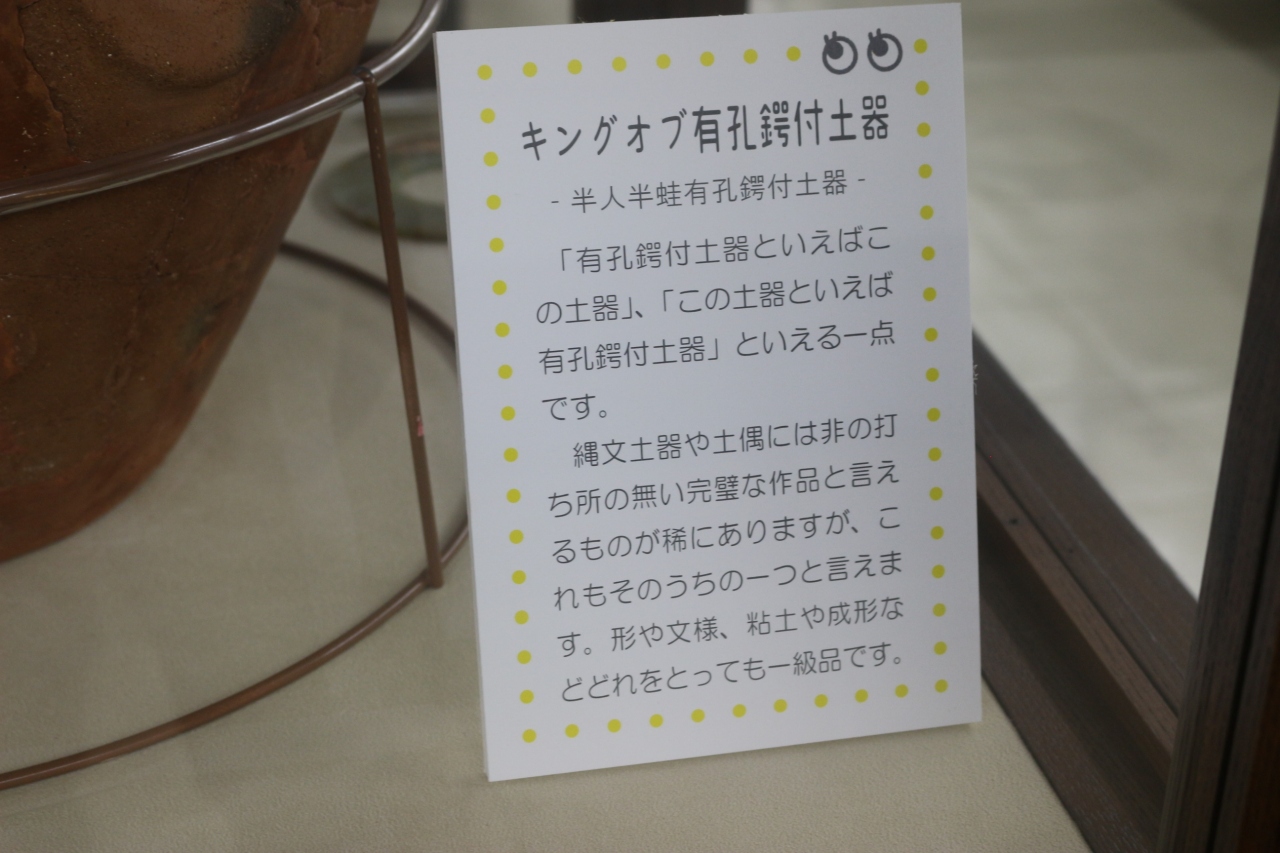 キングオブ有孔鍔付土器
- 半人半蛙有孔鍔付土器 -
「有孔鍔付土器といえばこ
の土器」、「この土器といえば
有孔鍔付土器」といえる一点
です。
縄文土器や土偶には非の打
ち所の無い完璧な作品と言え
るものが稀にありますが、こ
れもそのうちの一つと言えま
す。形や文様、粘土や成形な
どどれをとっても一級品です。